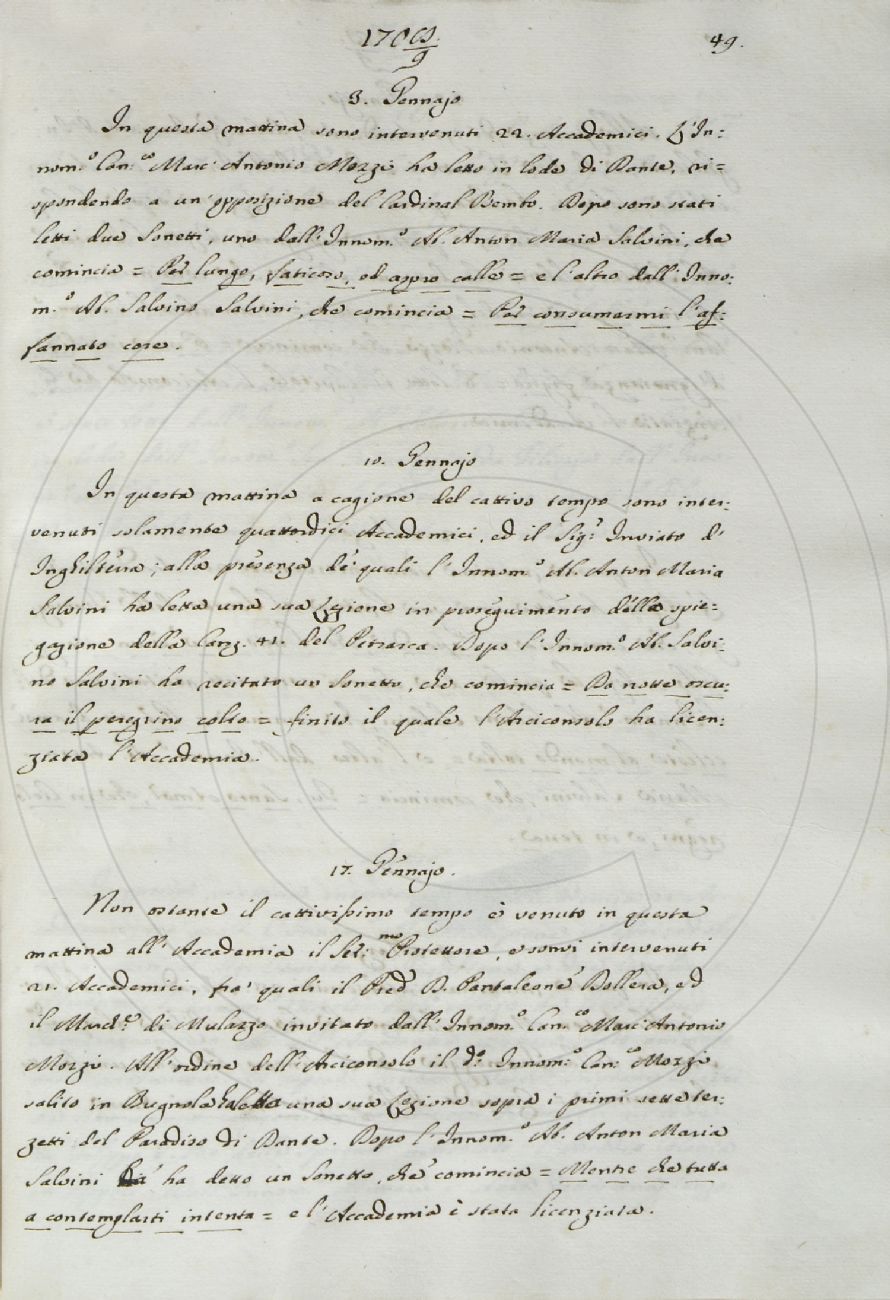 170 8/9 49.
3. Gennajo
In questa mattina sono intervenuti 22. Accademici. L'In:
nom.º Can.co Marc' Antonio Mozzi ha letto in lode di Dante, ri=
spondendo a un'opposizione del Cardinal Bembo. Dopo sono stati
letti due Sonetti, uno dall'Innom.º Ab. Anton Maria Salvini, che
comincia = Per lungo, faticoso, ed aspro calle = e l'altro dall'Inno:
m.º Ab. Salvino Salvini, che comincia = Per consumarmi l'af:
fannato core.
10. Gennajo
In questa mattina a cagione del cattivo tempo sono inter:
venuti solamente quattordici Accademici, ed il Sig.r Inviato d'
Inghilterra; alla presenza de' quali l'Innom.º Ab. Anton Maria
Salvini ha letta una sua Lezione in proseguimento della spie=
gazione della Canz. 41. del Petrarca. Dopo l'Innom.º Ab. Salvi:
no Salvini ha recitato un Sonetto, che comincia = Da notte oscu:
ra il peregrino colto = finito il quale l'Arciconsolo ha licen:
ziata l'Accademia.
17. Gennajo.
Non ostante il cattivissimo tempo è venuto in questa
mattina all'Accademia il Ser.mo Protettore, e sonvi intervenuti
21. Accademici, fra' quali il Pred. D. Pantaleone Dollera, ed
il March.e di Mulazzo invitato dall'Innom.º Can.co Marc' Antonio
Mozzi. All'ordine dell'Arciconsolo il d.º Innom.º Can.co Mozzi
salito in Bugnola ha letta una sua Lezione sopra i primi sette ter:
zetti del Paradiso di Dante. Dopo l'Innom.º Ab. Anton Maria
Salvini ha detto un Sonetto, che comincia = Mentre che tutta
a contemplarti intenta = e l'Accademia è stata licenziata.